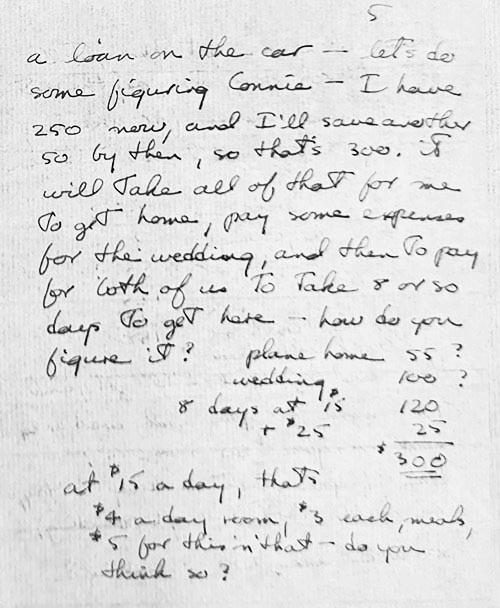 5
a loan on the car — let's do
some figuring Connie — I have
250 now, and I'll save another
50 by then, so that's 300. it
will take all of that for me
to get home, pay some expenses
for the wedding, and then to pay
for both of us to take 8 or so
days to get here — how do you
figure it? plane home 55 ?
wedding 100 ?
8 days at $15 120
+ $25 25
$300
at $15 a day, that's
$4 a day room, $3 each, meals,
$5 for this 'n' that — do you
think so?